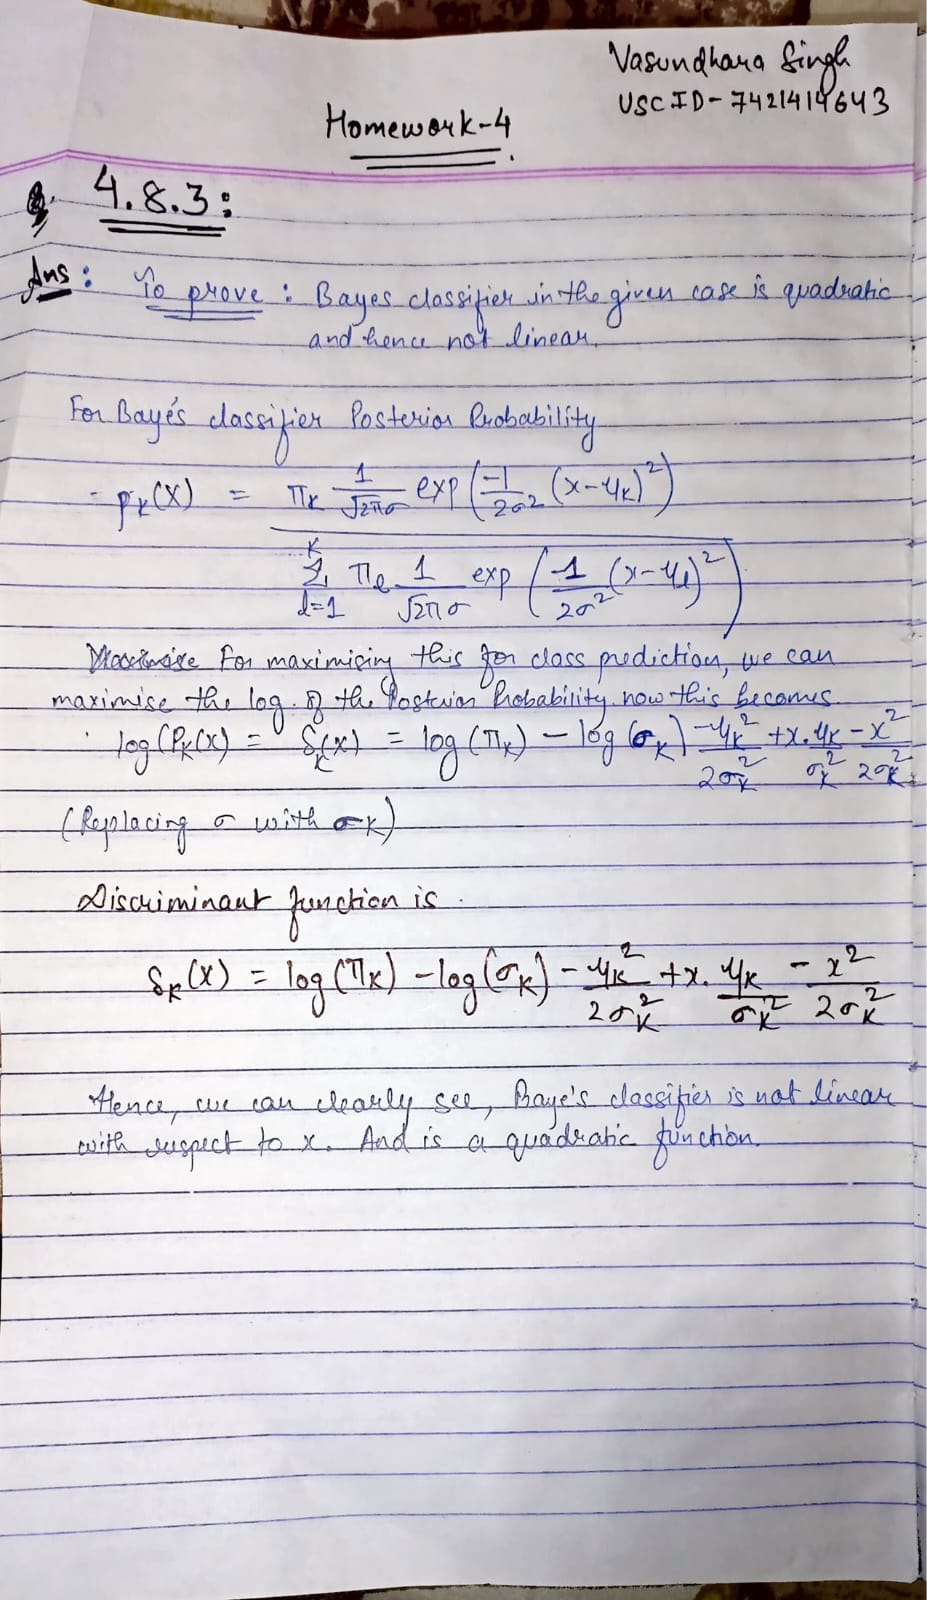 Vasundhara Singh
USC ID - 7421414643
Homework-4
Q. 4.8.3:
Ans: To prove: Bayes classifier in the given case is quadratic
and hence not linear.
For Baye's classifier Posterior Probability
p_k(X) = π_k 1/√2πσ exp(-1/2σ² (x-μ_k)²)
Σ_{l=1}^{K} π_l 1/√2πσ exp(-1/2σ² (x-μ_l)²)
For maximising this for class prediction, we can
maximise the log. of the Posterior Probability. now this becomes
log(P_k(x)) = δ_k(x) = log(π_k) - log(σ_k) - μ_k²/2σ_k² + x.μ_k/σ_k² - x²/2σ_k²
(Replacing σ with σ_k)
Discriminant function is.
δ_k(x) = log(π_k) - log(σ_k) - μ_k²/2σ_k² + x.μ_k/σ_k² - x²/2σ_k²
Hence, we can clearly see, Baye's classifier is not linear
with respect to x. And is a quadratic function.